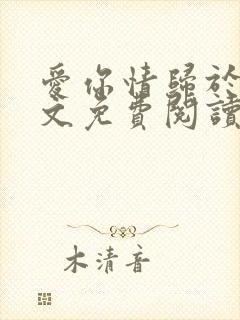 愛你情歸於
文免費閱讀
木清音